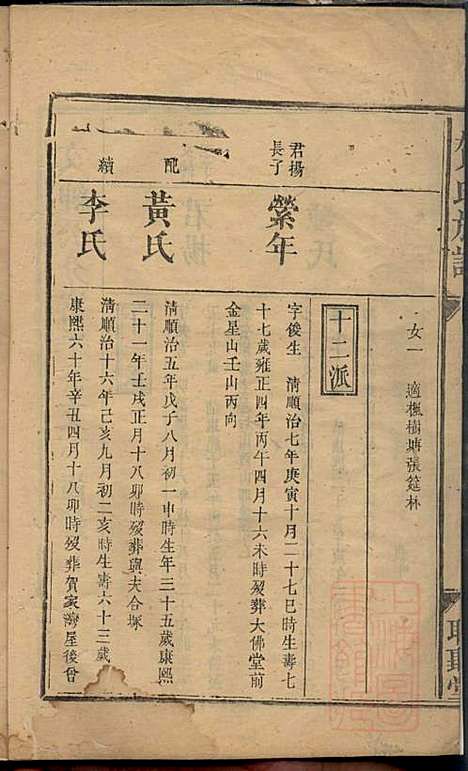 女一
適楓樹塘張筵林
十二派
君揚長子
縈年
字俊生　清順治七年庚寅十月二十七巳時生壽七
十七歲雍正四年丙午四月十六未時殁葬大佛堂前
金星山壬山丙向
配
黃氏
清順治五年戊子八月初一申時生年三十五歲康熙
二十一年壬戌正月十八卯時殁葬與夫合塚
續
李氏
清順治十六年己亥九月初二亥時生壽六十三歲
康熙六十年辛丑四月十八卯時殁葬賀家灣屋後曾